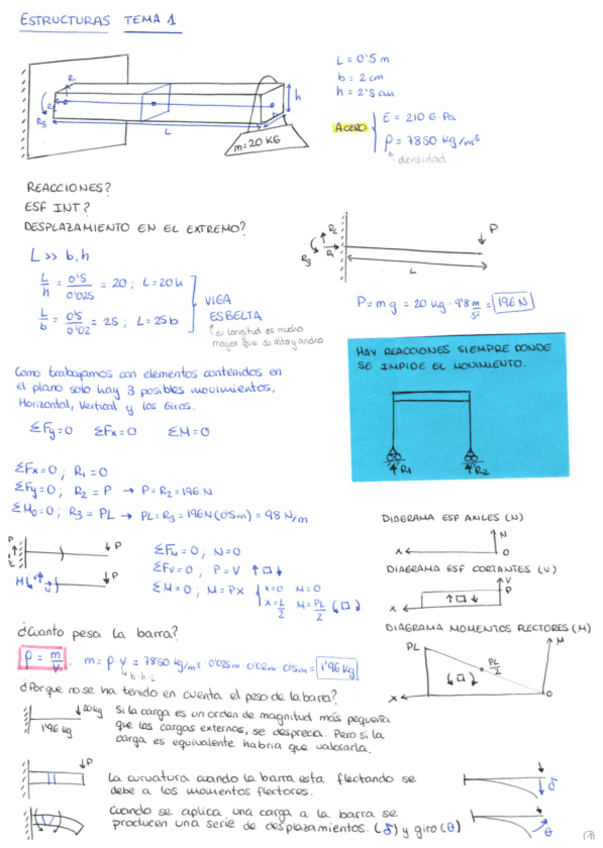 ESTRUCTURAS TEMA 1
L = 0'5 m
b = 2 cm
h = 2'5 cm
ACERO
E = 210 G Pa
ρ = 7850 kg/m³
densidad
R1
R3
h
b
L
m = 20 KG
REACCIONES?
ESF INT?
DESPLAZAMIENTO EN EL EXTREMO?
L >> b, h
L/h = 0'5/0'025 = 20 ; L = 20h
L/b = 0'5/0'02 = 25 ; L = 25b
VIGA
ESBELTA
su longitud es mucho
mayor que su alto y ancho
R2
R1
R3
P
L
P = m g = 20 kg · 9'8 m/s² = 196 N
HAY REACCIONES SIEMPRE DONDE
SE IMPIDE EL MOVIMIENTO.
R1
R2
Como trabajamos con elementos contenidos en
el plano solo hay 3 posibles movimientos,
Horizontal, Vertical y los Giros.
ΣFy = 0 ΣFx = 0 ΣM = 0
ΣFx = 0 ; R1 = 0
ΣFy = 0 ; R2 = P → P = R2 = 196 N
ΣM0 = 0 ; R3 = PL → PL = R3 = 196N (0'5m) = 98 N/m
P
P
M
V
N
ΣFu = 0 ; N = 0
ΣFv = 0 ; P = V
ΣM = 0 ; M = Px
x = 0 M = 0
x = L/2 M = PL/2
DIAGRAMA ESF AXILES (N)
N
x
0
DIAGRAMA ESF CORTANTES (V)
V
P
x
DIAGRAMA MOMENTOS FLECTORES (M)
PL
PL/2
M
x
0
¿Cuanto pesa la barra?
ρ = m/V
m = ρ · v = 7850 kg/m³ · 0'025m · 0'02m · 0'5m = 1'96 kg
b·h·L
¿Porque no se ha tenido en cuenta el peso de la barra?
20kg
1'96 kg
Si la carga es un orden de magnitud más pequeña
que las cargas externas, se desprecia. Pero si la
carga es equivalente habria que valorarla.
P
La curvatura cuando la barra esta flectando se
debe a los momentos flectores.
Cuando se aplica una carga a la barra se
producen una serie de desplazamientos. (δ) y giro (θ)
δ
θ